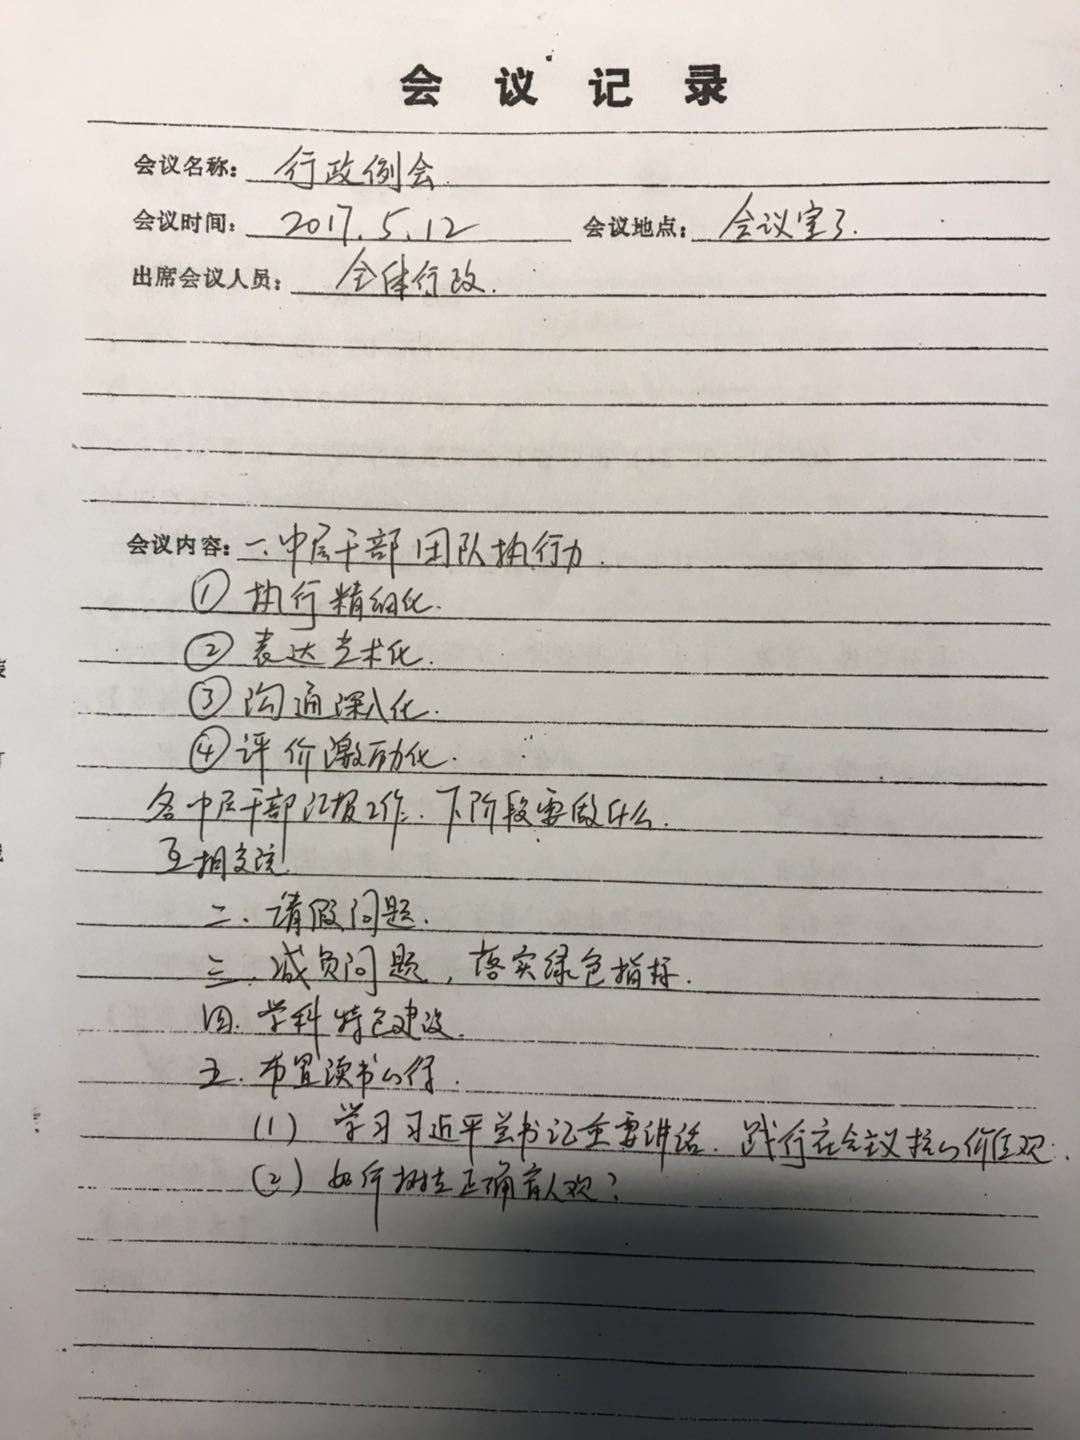 会议记录
会议名称: 行政例会.
会议时间: 2017.5.12 会议地点: 会议室3.
出席会议人员: 全体行政.
会议内容: 一、中层干部团队执行力.
① 执行精细化.
② 表达艺术化.
③ 沟通深入化.
④ 评价激励化.
各中层干部汇报工作、下阶段要做什么.
互相交流
二、请假问题.
三、减负问题，落实绿色指标.
四、学科特色建设.
五、布置读书心得.
(1) 学习习近平总书记重要讲话、践行社会主义核心价值观.
(2) 如何树立正确育人观?